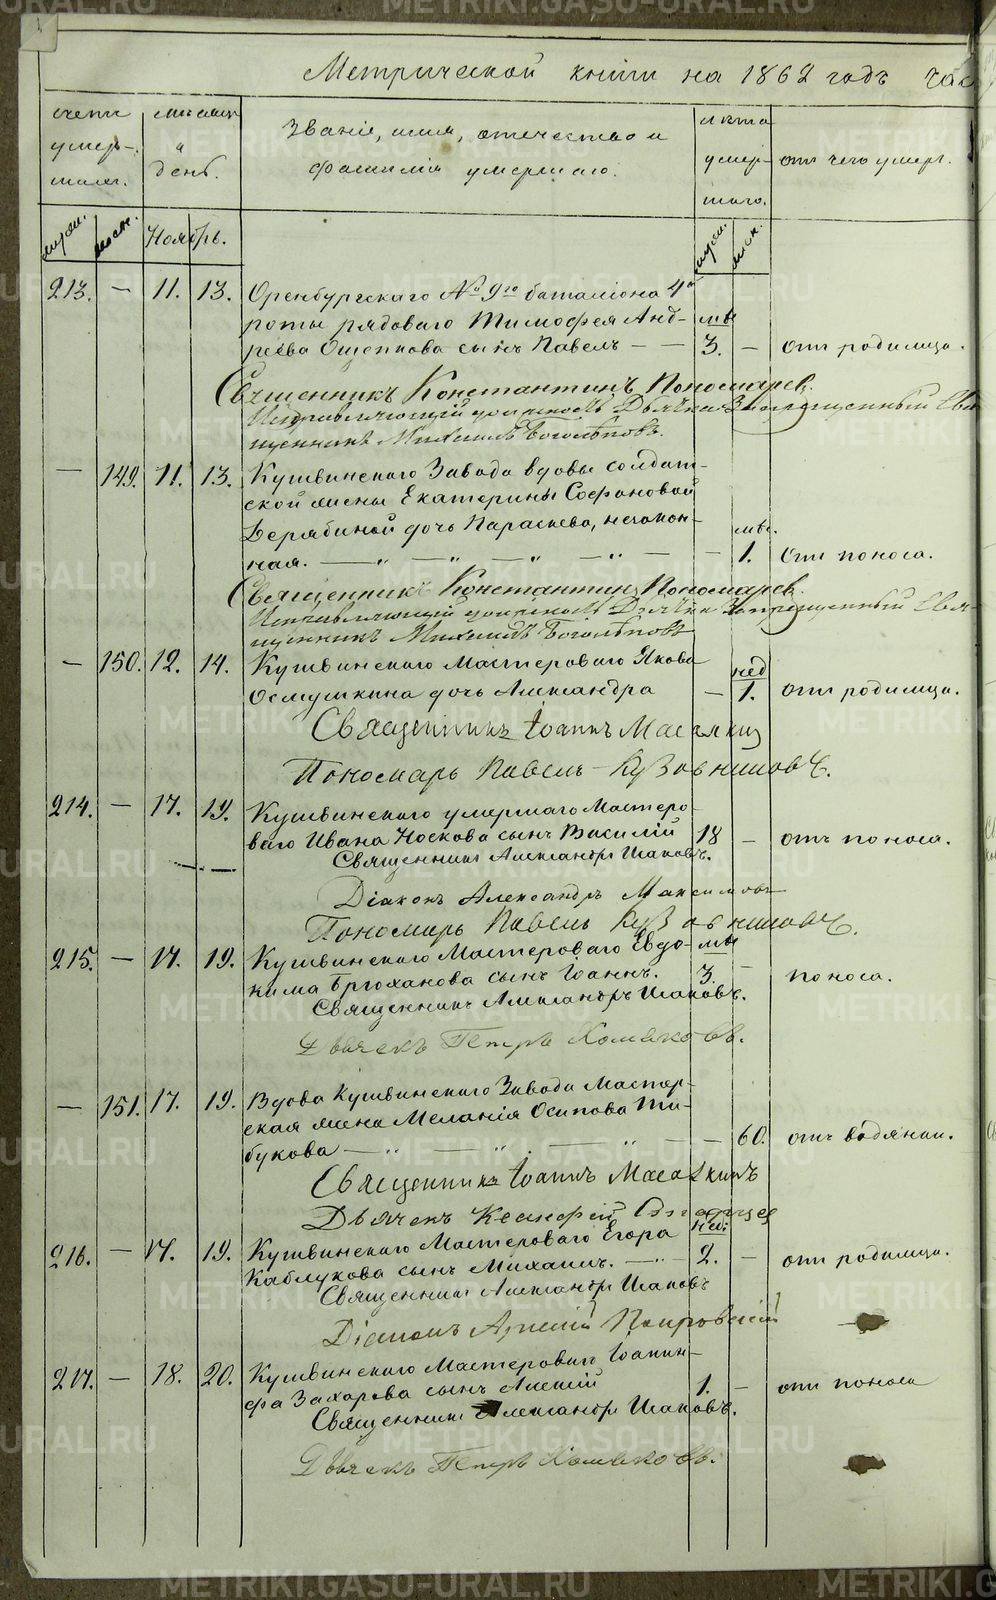 Метрической книги на 1862 годъ час
счетъ умер-шихъ.
мѣсяцъ и день.
Званіе, имя, отечество и фамилія умершаго.
лѣта умер-шаго.
отъ чего умеръ.
муж. женс. Ноябрь. муж. жен.
213. — 11. 13. Оренбургскаго № 9го баталіона 4й
роты рядоваго Тимофея Анд- мѣ
реева Ощепкова сынъ Павелъ — — 3. — отъ родимца.
Священникъ Константинъ Пономарев.
Исправляющій должность Дьячка Запрещенный Свя-
щенникъ Михаилъ Боголѣповъ.
— 149. 11. 13. Кушвинскаго Завода вдовы солдат-
ской жены Екатерины Софоновой
Дерябиной дочь Параскева, незакон- мѣс.
ная. — „ — „ — „ — „ — — 1. отъ поноса.
Священникъ Константин Пономарев.
Исправляющій должность Дьячка Запрещенный Свя-
щенникъ Михаилъ Боголѣповъ
— 150. 12. 14. Кушвинскаго Мастероваго Якова нед
Осмушкина дочь Александра — 1. отъ родимца.
Священникъ Іоаннъ Масалкин
Пономарь Павелъ Кузовниковъ.
214. — 17. 19. Кушвинскаго умершаго Мастеро-
ваго Ивана Носкова сынъ Василій 18 — отъ поноса.
Священникъ Александръ Исаковъ.
Діаконъ Александръ Максимовъ
Пономарь Павелъ Кузовниковъ.
215. — 17. 19. Кушвинскаго Мастероваго Евдо- мѣ
кима Брюханова сынъ Іоаннъ. 3. — поноса.
Священникъ Александръ Исаковъ.
Дьячекъ Петръ Хомяковъ.
— 151. 17. 19. Вдова Кушвинскаго Завода Мастер-
ская жена Меланія Осипова Ти-
букова — „ — „ — „ — — 60. отъ водянки.
Священникъ Іоаннъ Масалкинъ
Дьячекъ Ксенофій
216. — 17. 19. Кушвинскаго Мастероваго Егора нед:
Каблукова сынъ Михаилъ. — „ — 2. — отъ родимца.
Священникъ Александръ Исаковъ
Діаконъ Арсеній Покровскій
217. — 18. 20. Кушвинскаго Мастероваго Іоакин-
фа Захарова сынъ Алексій 1. — отъ поноса
Священникъ Александръ Исаковъ.
Дьячекъ Петръ Хомяковъ.
METRIKI.GASO-URAL.RU